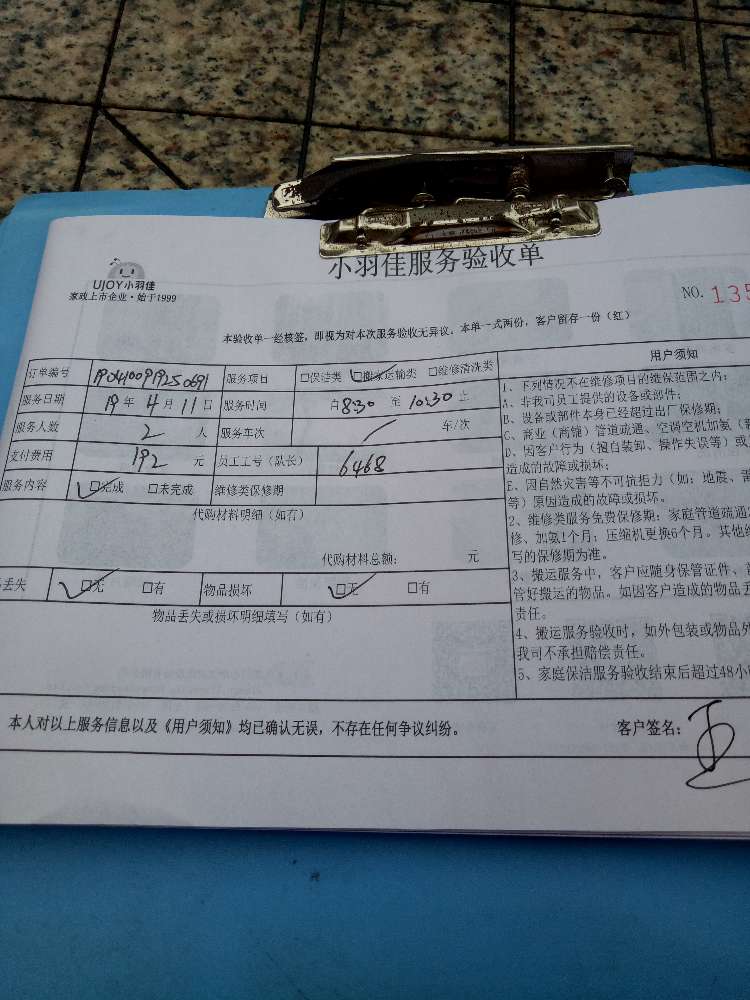 小羽佳服务验收单
UJOY小羽佳
家政上市企业·始于1999
NO. 135
本验收单一经核签，即视为对本次服务验收无异议，本单一式两份，客户留存一份（红）
订单编号 1904100919250691 服务项目 □保洁类 □搬家运输类 □维修清洗类
服务日期 19 年 4 月 11 日 服务时间 自 8:30 至 10:30 止
服务人数 2 人 服务车次 / 车/次
支付费用 192 元 员工工号（队长） 6468
服务内容 □完成 □未完成 维修类保修期
代购材料明细（如有）
代购材料总额： 元
丢失 □无 □有 物品损坏 □无 □有
物品丢失或损坏明细填写（如有）
用户须知
1、下列情况不在维修项目的维保范围之内：
A、非我司员工提供的设备或部件；
B、设备或部件本身已经超过出厂保修期；
C、商业（商铺）管道疏通、空调空机加氨（
D、因客户行为（擅自装卸、操作失误等）或
造成的故障或损坏；
E、因自然灾害等不可抗拒力（如：地震、雷
等）原因造成的故障或损坏。
2、维修类服务免费保修期：家庭管道疏通
修、加氨1个月；压缩机更换6个月。其他
写的保修期为准。
3、搬运服务中，客户应随身保管证件、
管好搬运的物品。如因客户造成的物品丢
责任。
4、搬运服务验收时，如外包装或物品外
我司不承担赔偿责任。
5、家庭保洁服务验收结束后超过48小
本人对以上服务信息以及《用户须知》均已确认无误，不存在任何争议纠纷。 客户签名：